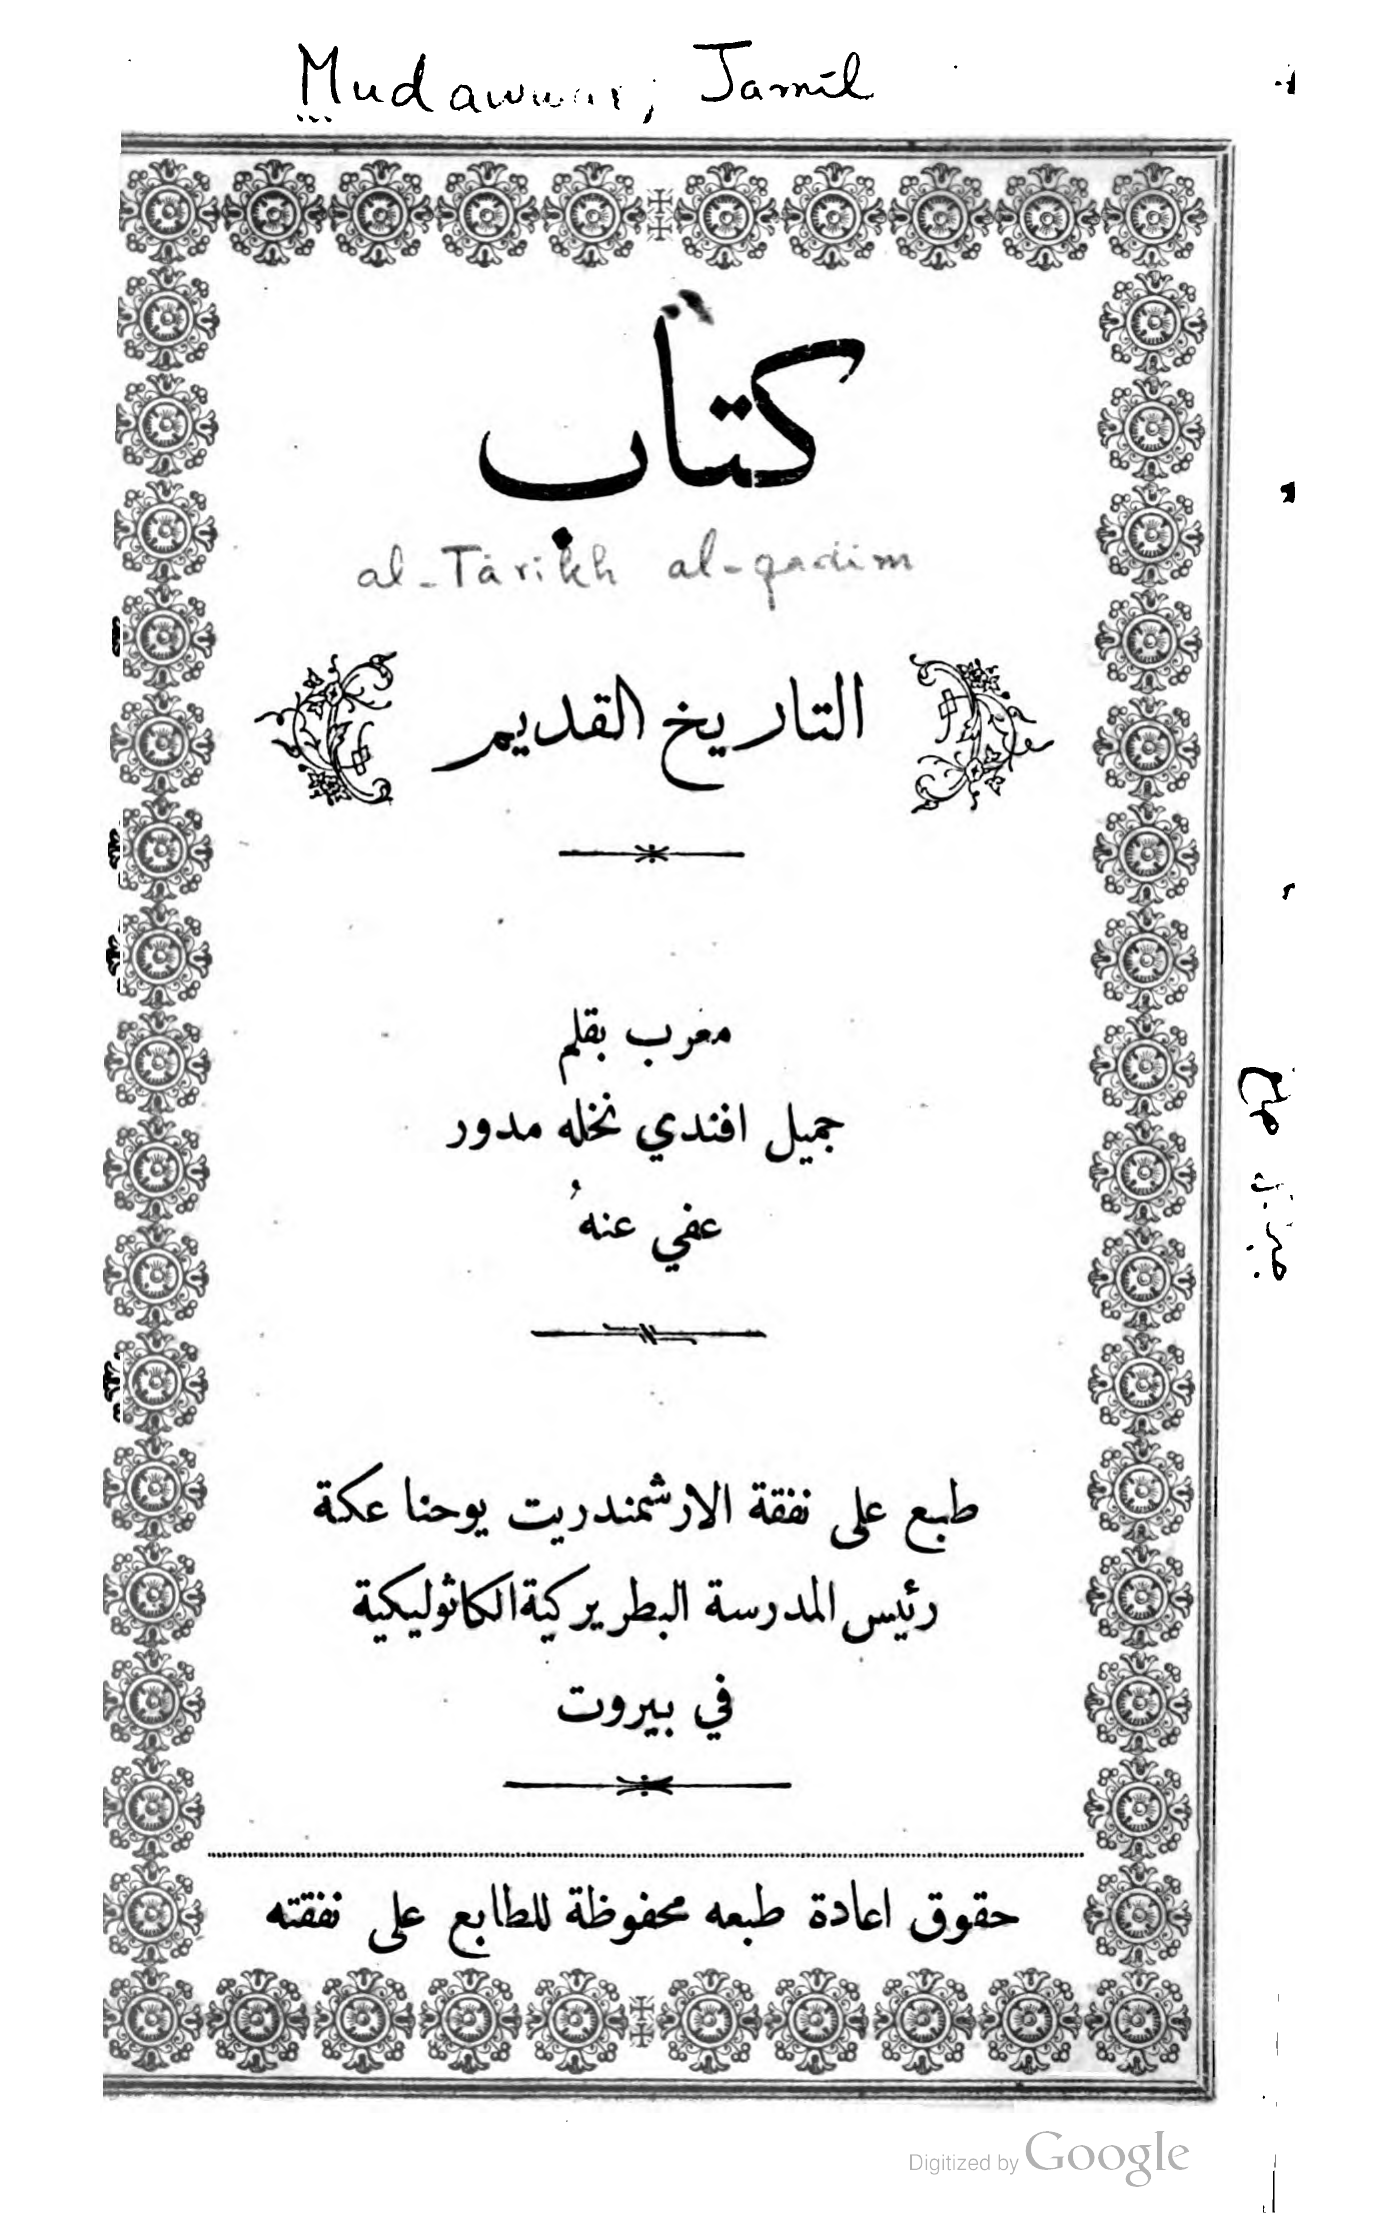 Mudawwar, Jamīl
كتاب
al-Tārīkh al-qadīm
التاريخ القديم
معرب بقلم
جميل افندي نخله مدور
عفي عنهُ
طبع على نفقة الارشمندريت يوحنا عكة
رئيس المدرسة البطريركية الكاثوليكية
في بيروت
حقوق اعادة طبعه محفوظة للطابع على نفقته
Digitized by Google